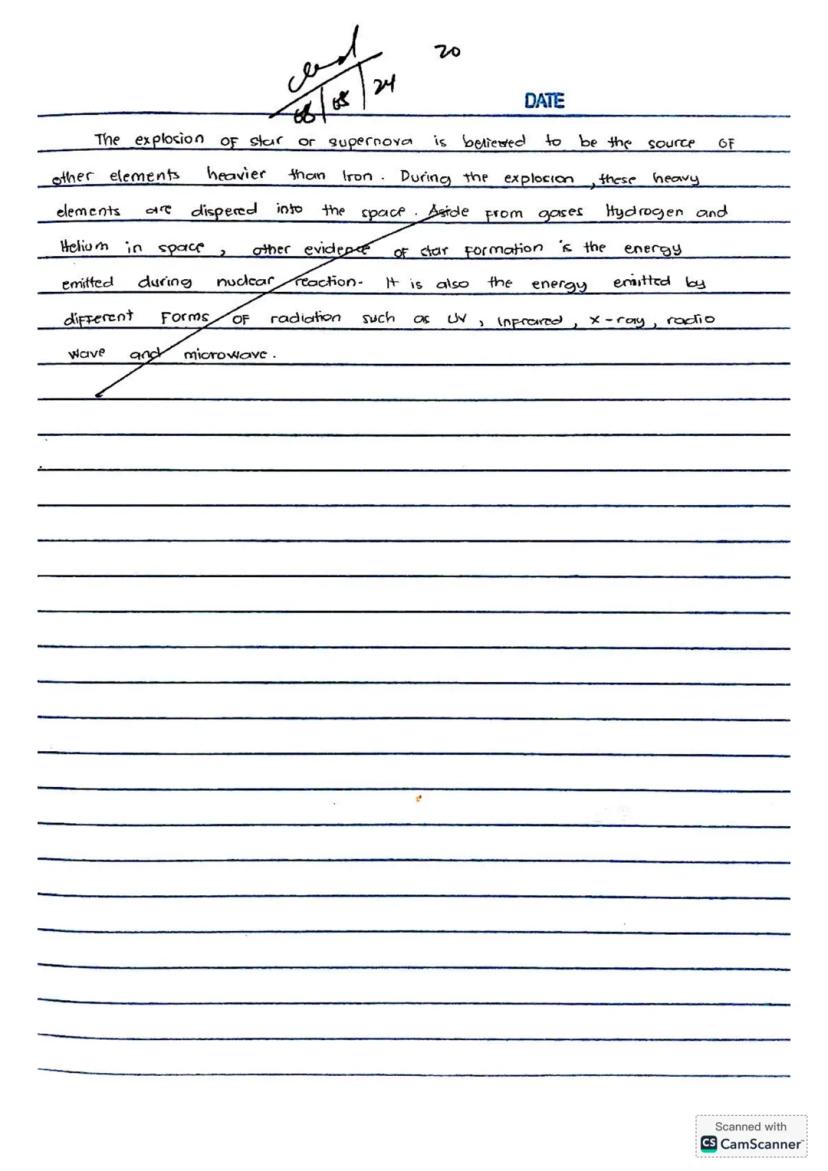 20
08 | 08 | 24
DATE
The explosion of star or supernova is believed to be the source of
other elements heavier than Iron. During the explosion, these heavy
elements are dispered into the space. Aside from gases Hydrogen and
Helium in space, other evidence of star formation is the energy
emitted during nuclear reaction. It is also the energy emitted by
different Forms of radiation such as UV, Infrared, x-ray, radio
wave and microwave.
Scanned with
CS CamScanner